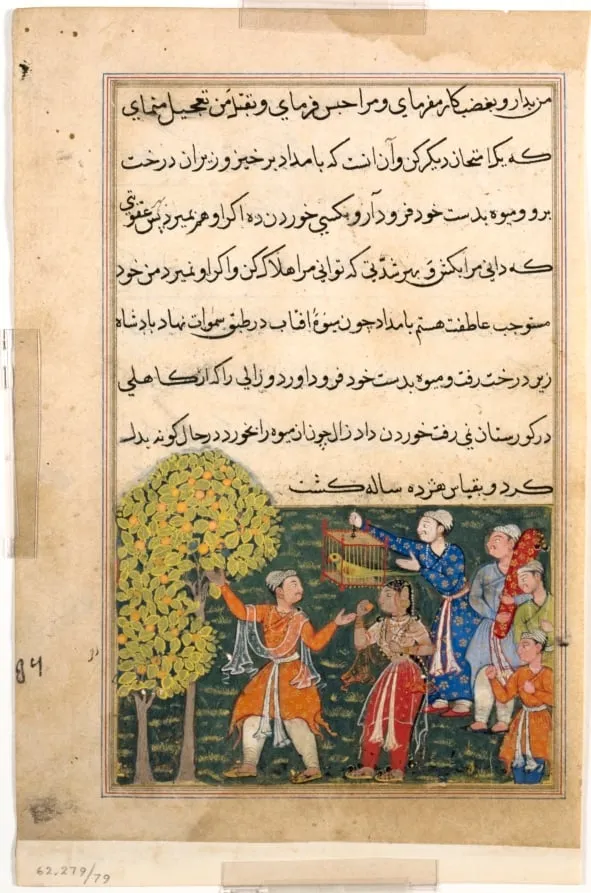 من بدار و بغضب کار مفرمای و مرا حبس فرمای و بقتل من تعجیل منمای
که یک امتحان دیگر کن و آن انست که بامداد برخیز و زیر ان درخت
برو و میوه بدست خود فرود آر و بکسی خوردن ده اکر او هم بمیرد پس بهر عقوبتی
که دانی مرا بکش و بهر شدّتی که توانی مرا هلاک کن و اکر او نمیرد من خود
مستوجب عاطفت هستم بامداد چون میوهٔ افتاب در طبق سموات نهاد بادشاه
زیر درخت رفت و میوه بدست خود فرود اورد و زالی را که از کاهلی
در کورستان نمی رفت خوردن داد زال چون از میوه را بخورد در حال کونه بدل
کرد و بقیاس هژده ساله کشت
62.279/79